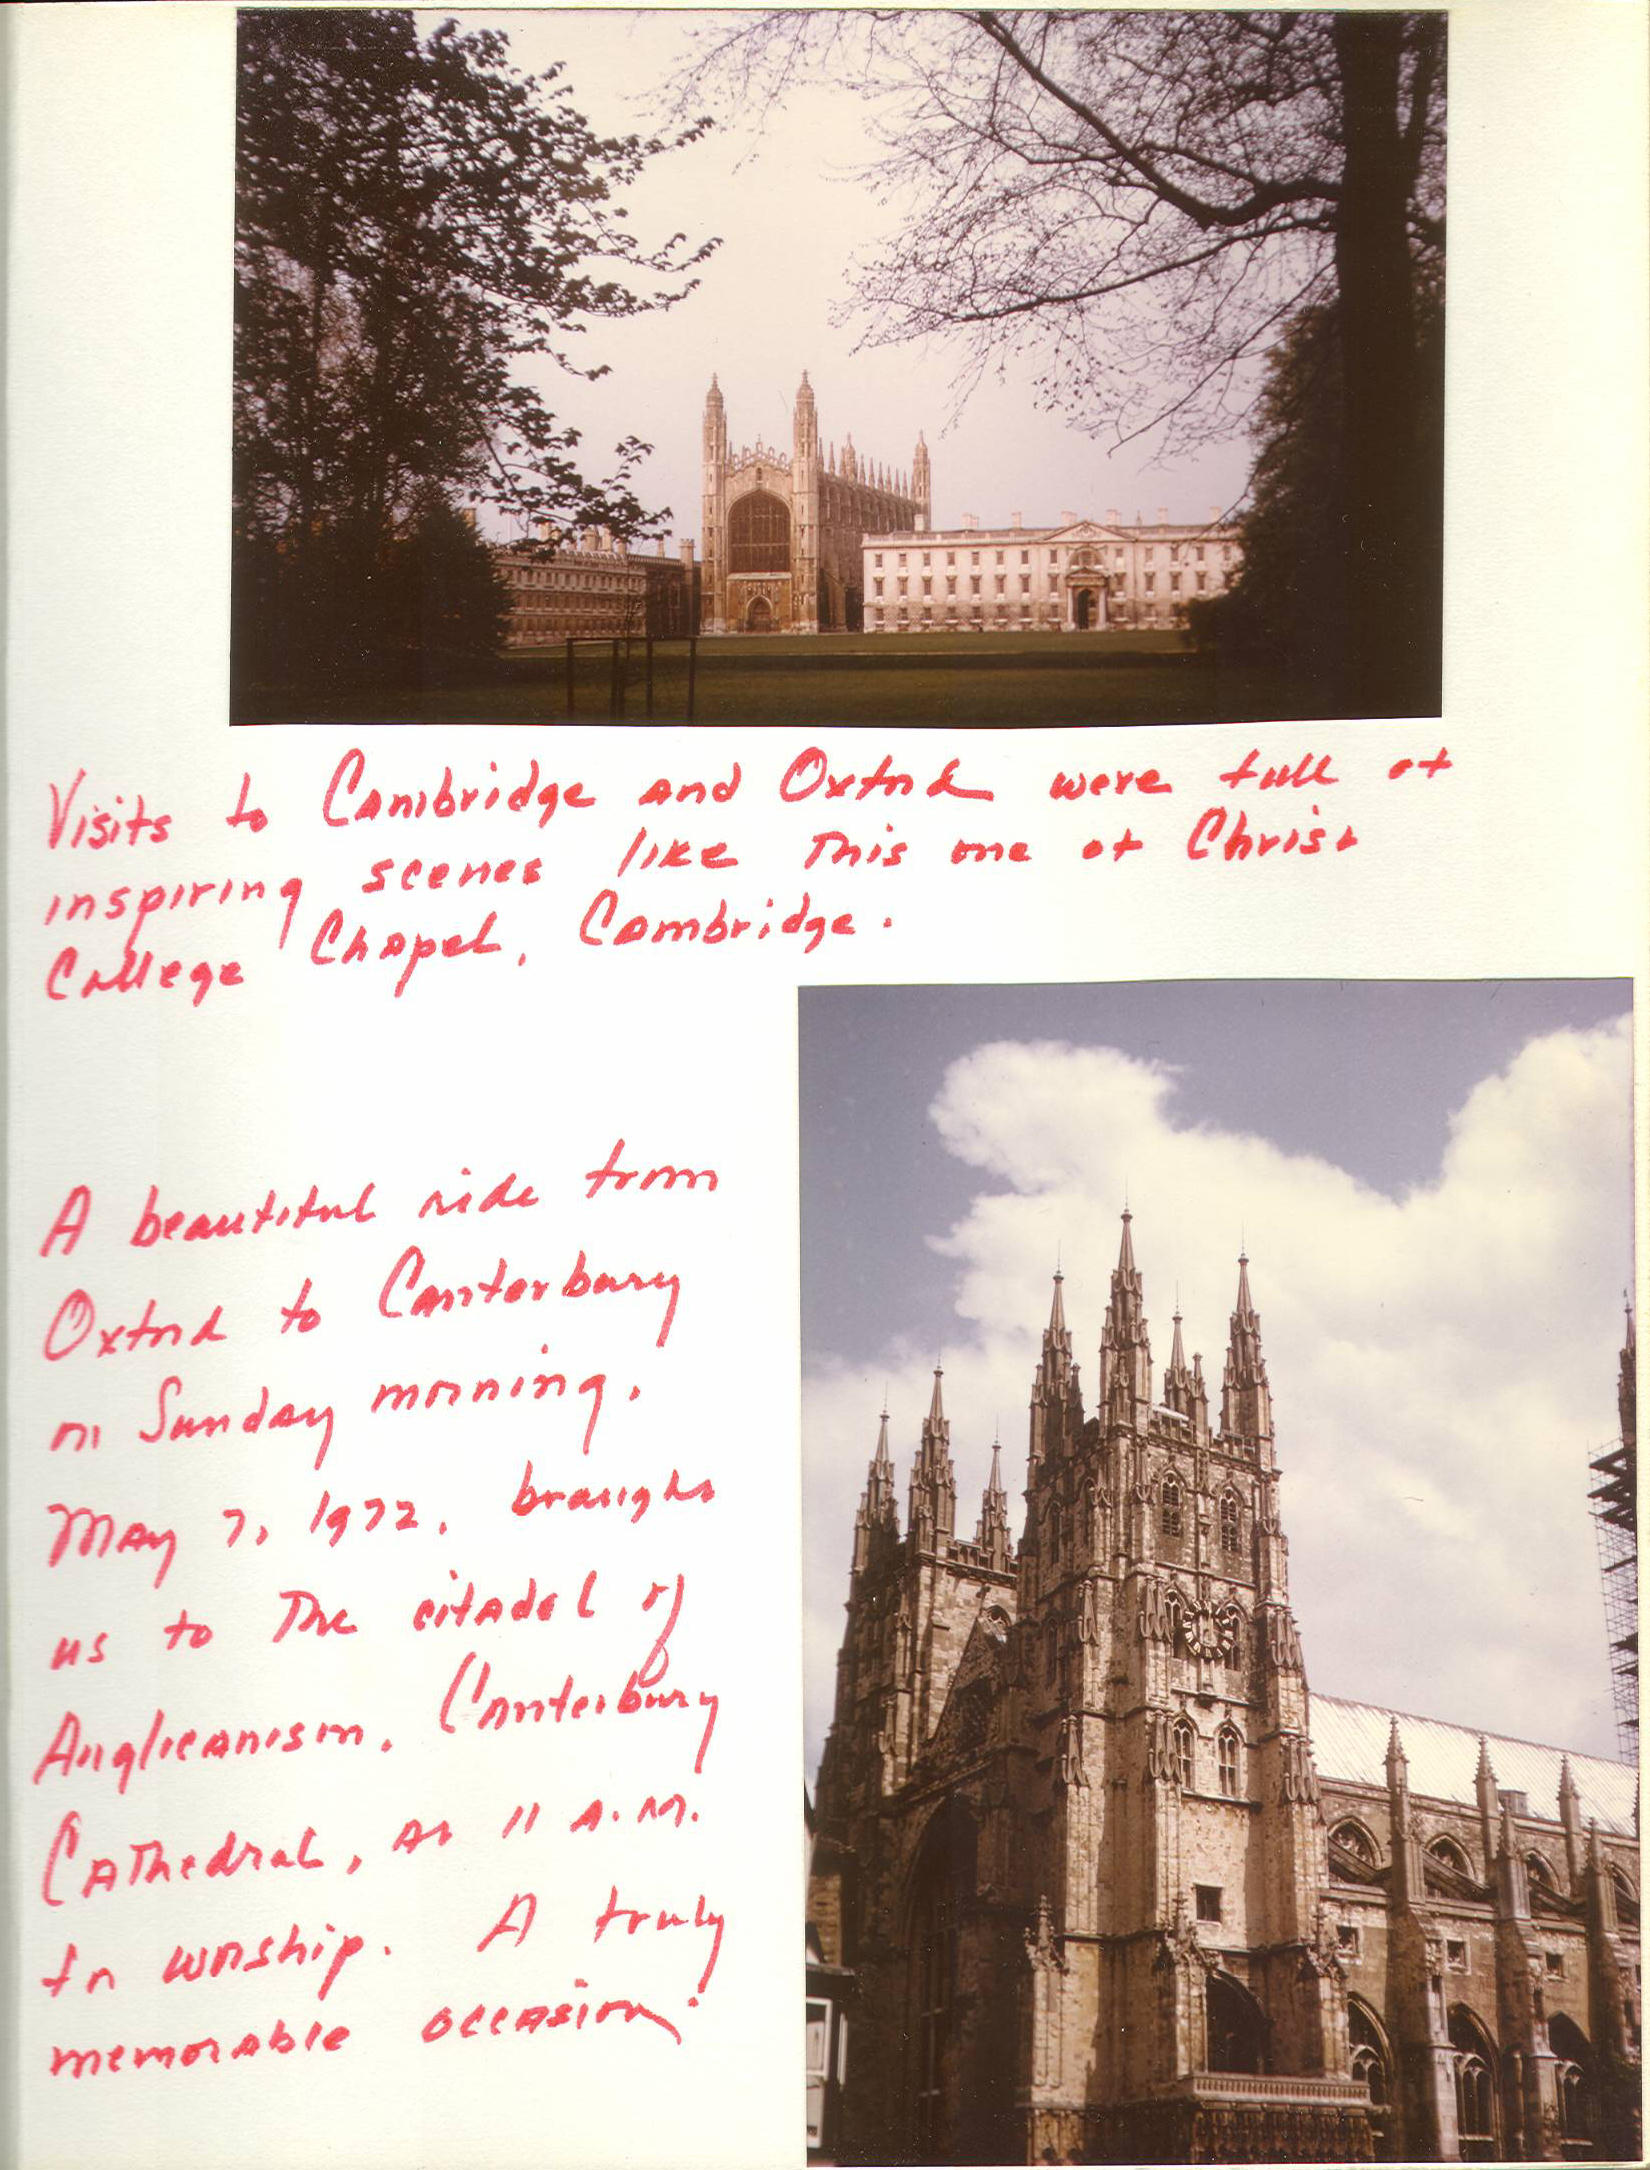 Visits to Cambridge and Oxford were full of
inspiring scenes like this one at Christ
College Chapel, Cambridge.
A beautiful ride from
Oxford to Canterbury
on Sunday morning,
May 7, 1972, brought
us to the citadel of
Anglicanism, Canterbury
Cathedral, at 11 A.M.
for worship. A truly
memorable occasion.